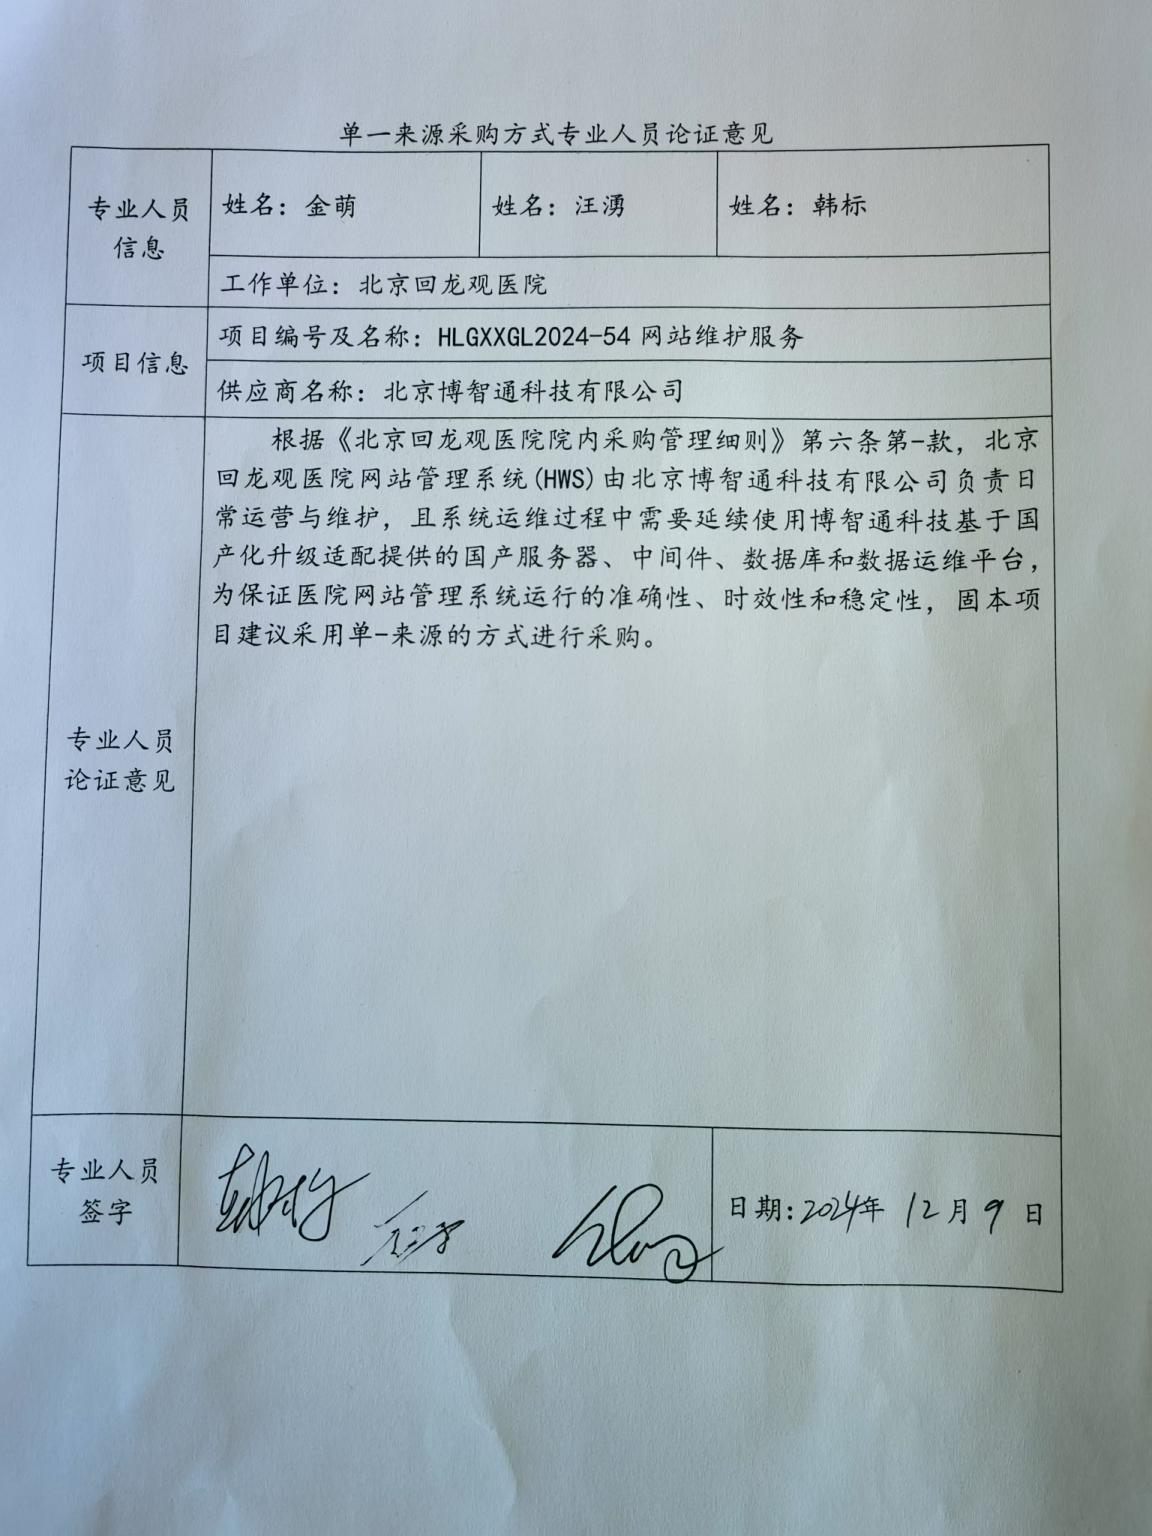 单一来源采购方式专业人员论证意见
专业人员
信息
姓名：金萌
姓名：汪湧
姓名：韩标
工作单位：北京回龙观医院
项目信息
项目编号及名称：HLGXXGL2024-54 网站维护服务
供应商名称：北京博智通科技有限公司
专业人员
论证意见
根据《北京回龙观医院院内采购管理细则》第六条第-款，北京
回龙观医院网站管理系统(HWS)由北京博智通科技有限公司负责日
常运营与维护，且系统运维过程中需要延续使用博智通科技基于国
产化升级适配提供的国产服务器、中间件、数据库和数据运维平台，
为保证医院网站管理系统运行的准确性、时效性和稳定性，固本项
目建议采用单-来源的方式进行采购。
专业人员
签字
韩标
日期:2024年 12月9日